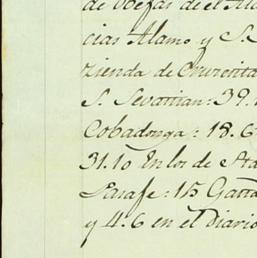 de Obejas de el Al
cias Alamo y S.
zienda de Cruzesita
S. Sevastian: 39.
Cobadonga: 18.6
31.10 En los de Sta
Parafe: 15 Gana
y 4.6 en el Diario